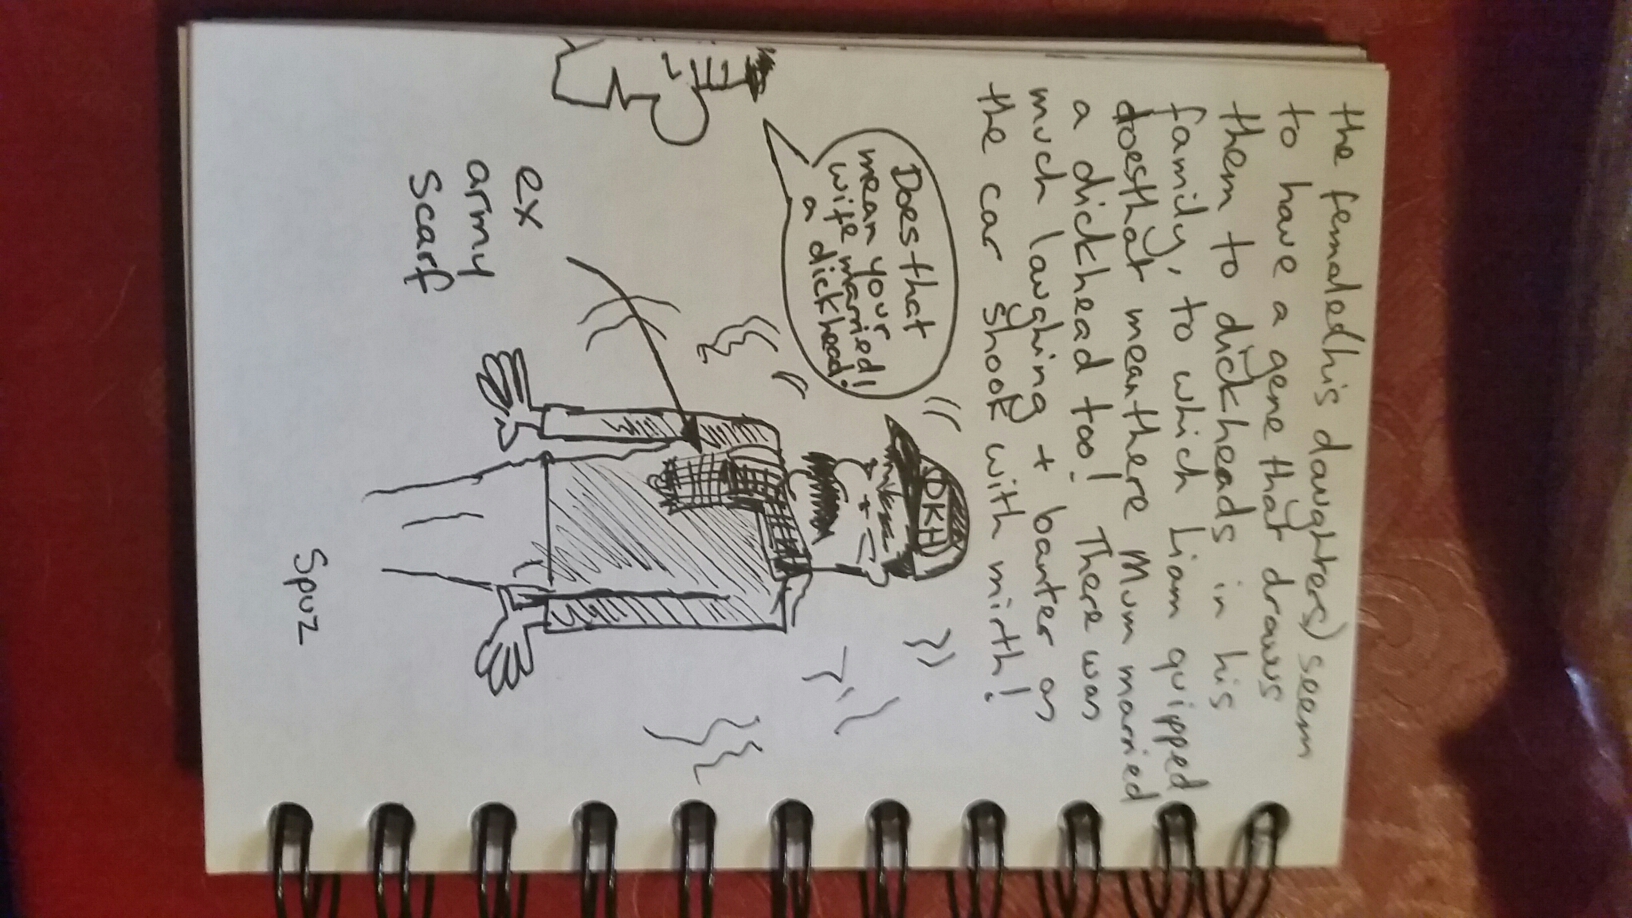 the females(his daughters) seem
to have a gene that draws
them to dickheads in his
family, to which Liam quipped
doesthat meanthere Mum married
a dickhead too! There was
much laughing + banter as
the car shook with mirth!
Does that
mean your
wife married
a dickhead?
DKH
ex
army
scarf
Spuz